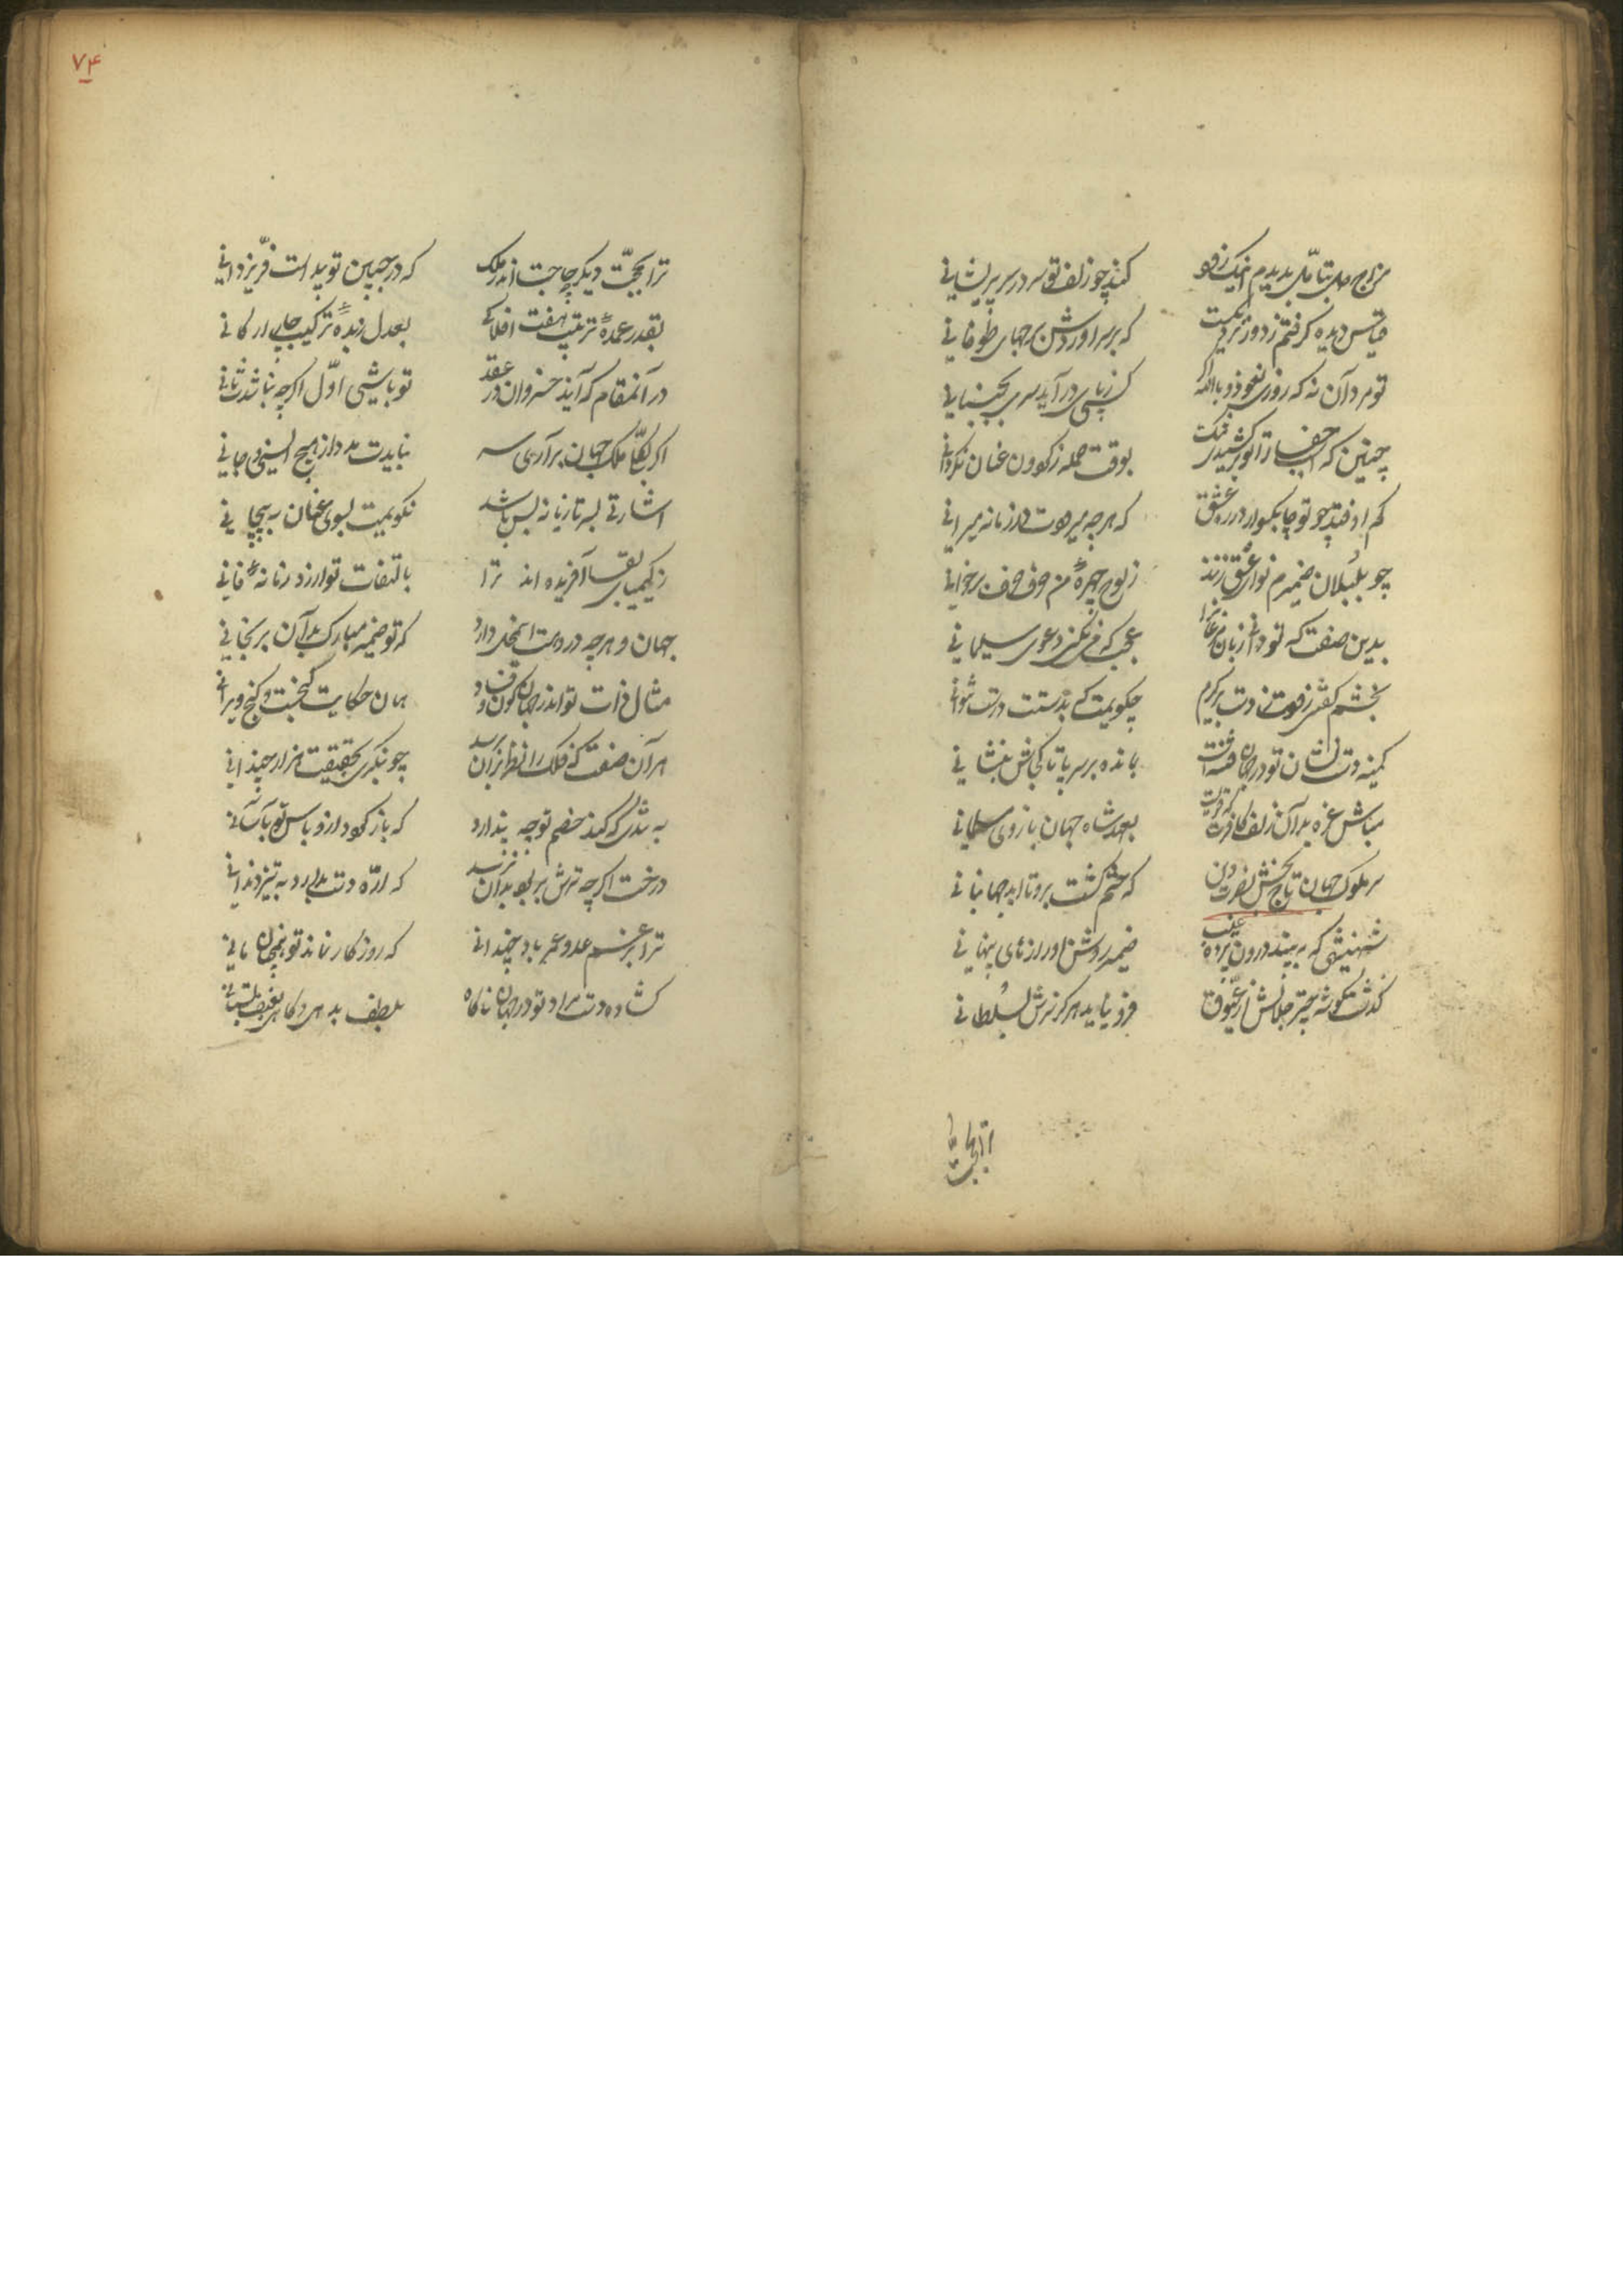 مزاج دل بتأمل بدیدم اینک زود کند چو زلف تو سر در سر پریشانی
قیاس دیده گرفتم ز دور نزدیکست که بر سر آوردش جهای طوفانی
تو مرد آن نه که روزی نعوذ بالله اگر کسی ز پای درآید سری بجنبانی
چنین که اسب جفا را تو برکشیدی تنگ بوقت حمله ز گردون عنان نگردانی
کم اوفتد چو تو چابکسوار در ره عشق که هر چه میرودت در زمانه میرانی
چو بلبلان ضمیرم نوای عشق زنند ز لوح چهرهٔ من حرف حرف برخوانی
بدین صفت که تو دانی زبان مرغان را عجب که می نکنی دعوی سلیمانی
بخشم گفتی زودت ز دست برگیرم چگویمت که بدستت درست بتوانی
کمینه دست نشان تو در جهان فتنه است بمانده بر سر پا تا کجاش بنشانی
مباش غره بدان زلف کافرت که فرست بعهد شاه جهان بازوی مسلمانی
سر ملوک جهان تاج بخش نصرت دین که ختم گشت برو تا ابد جهانبانی
شهنشهی که ببیند درون پردهٔ غیب ضمیر روشن او رازهای پنهانی
گذشت گوشهٔ چتر جلالش از عیوق فرو نیاید هرگز سرش بسلطانی
۷۴
ترا بحجت دیگر چه حاجت اندر ملک که در جبین تو پیداست فر یزدانی
بقدر عمدهٔ ترتیب هفت افلاکی بعدل زبدهٔ ترکیب چار ارکانی
در آنمقام که آیند خسروان در عقد تو باشی اول اگرچه نباشدت ثانی
اگر بکل ملک جهان برآری سر نبایدت مدد از هیچ انسی و جانی
اشارتی بسر تازیانه بس باشد نگویمت بسوی عنان بپیچانی
ز کیمیای بقا آفریده اند ترا بالتفات تو ارزد زمانهٔ فانی
جهان و هر چه دروست این محل دارد که تو ضمیر مبارک بدان برنجانی
مثال ذات تو اندر جهان کون و فساد همان حکایت گنجست و کنج ویرانی
هر آن صفت که فلک را نظر بر آن برسد چو بنگری بحقیقت هزار چندانی
به بندگی که کند خصم تو چه پندارد که باز گردد ازو باس تو بآسانی
درخت اگرچه ترش بر بود بدان نرسد که ارهٔ دست بدارد ز تیز دندانی
ترا برغم عدو عمر باد چندانی که روزگار نماند تو همچنان مانی
گشاده دست مراد تو در جهان ناگاه بلطف بدهی و گاهی بعنف بستانی